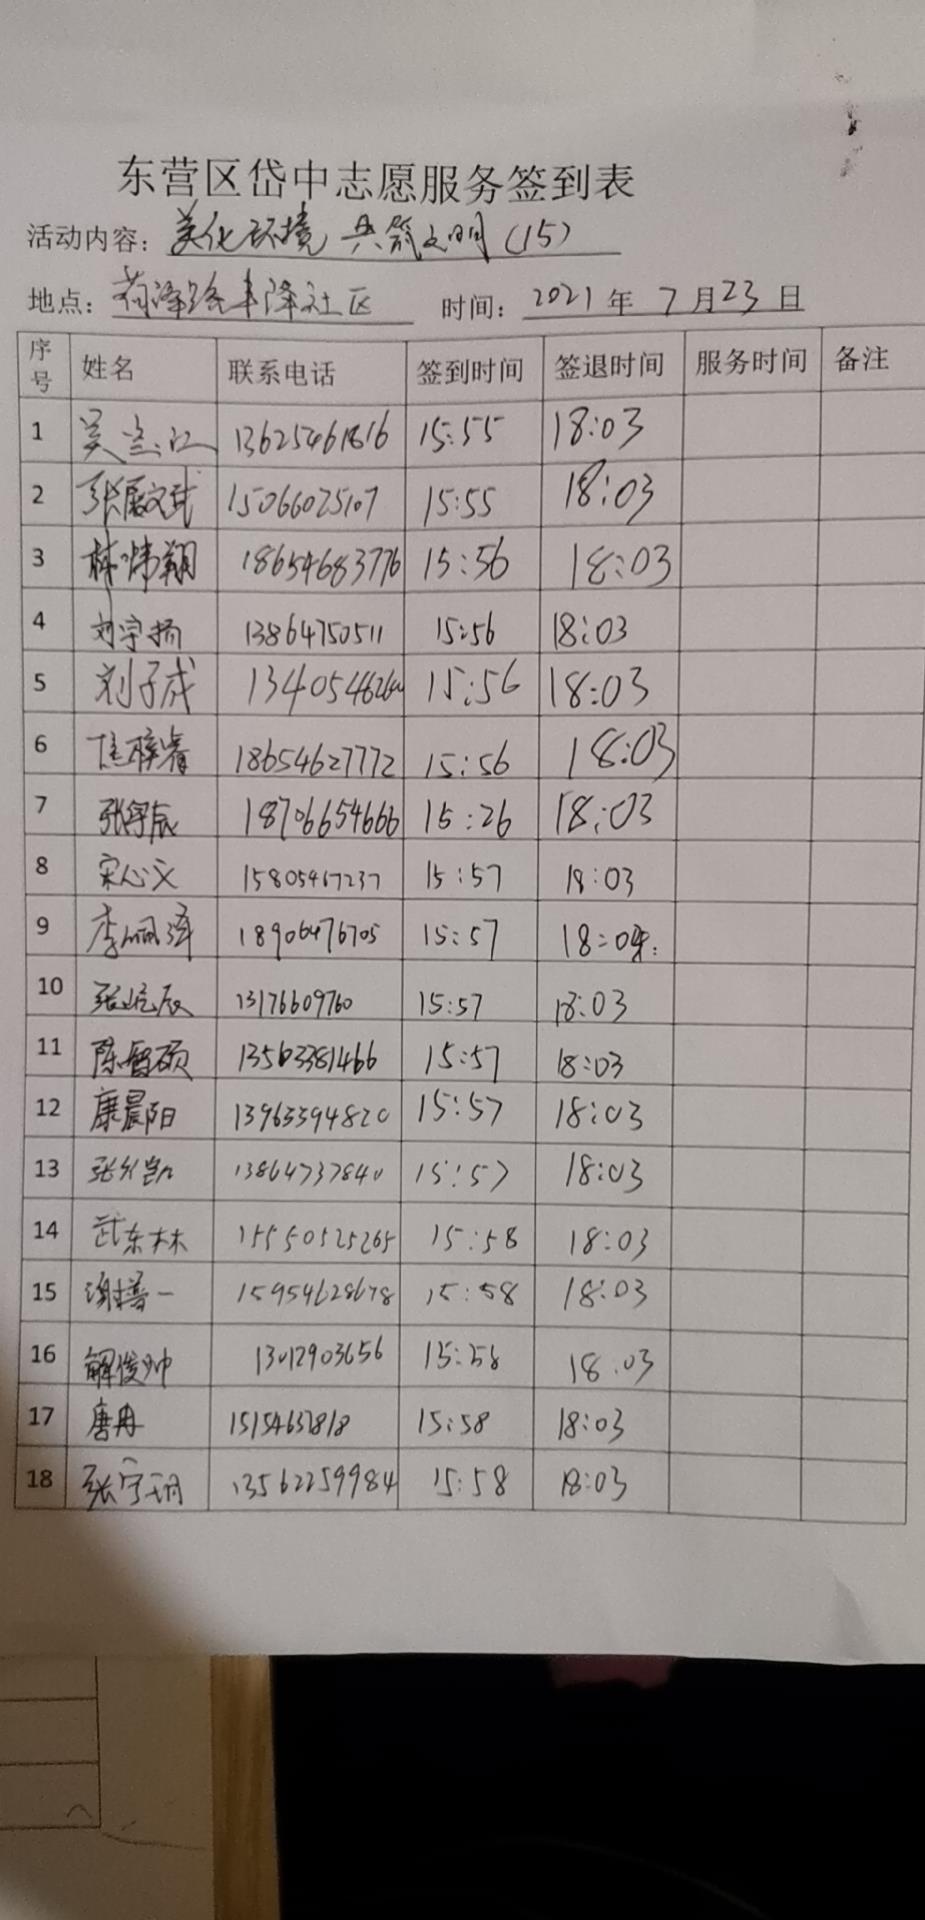 东营区岱中志愿服务签到表
活动内容：美化环境 共筑文明（15）
地点：菏泽路丰泽社区 时间：2021年7月23日
序号 姓名 联系电话 签到时间 签退时间 服务时间 备注
1 13625461816 15:55 18:03
2 张展文武 15066025107 15:55 18:03
3 林炜翔 18654683776 15:56 18:03
4 刘宇扬 13864750511 15:56 18:03
5 刘子成 15:56 18:03
6 睿 18654627772 15:56 18:03
7 张宇辰 18706654666 15:26 18:03
8 宋心文 15805467237 15:57 18:03
9 李佩泽 18906476705 15:57 18:04
10 张屹辰 13176609760 15:57 18:03
11 陈智硕 13563381466 15:57 18:03
12 康晨阳 13963394820 15:57 18:03
13 张凯 13864737840 15:57 18:03
14 武东林 15550525265 15:58 18:03
15 谢搢一 15954628678 15:58 18:03
16 解俊帅 13012903656 15:58 18:03
17 唐冉 15:58 18:03
18 张宇玥 13562259984 15:58 18:03